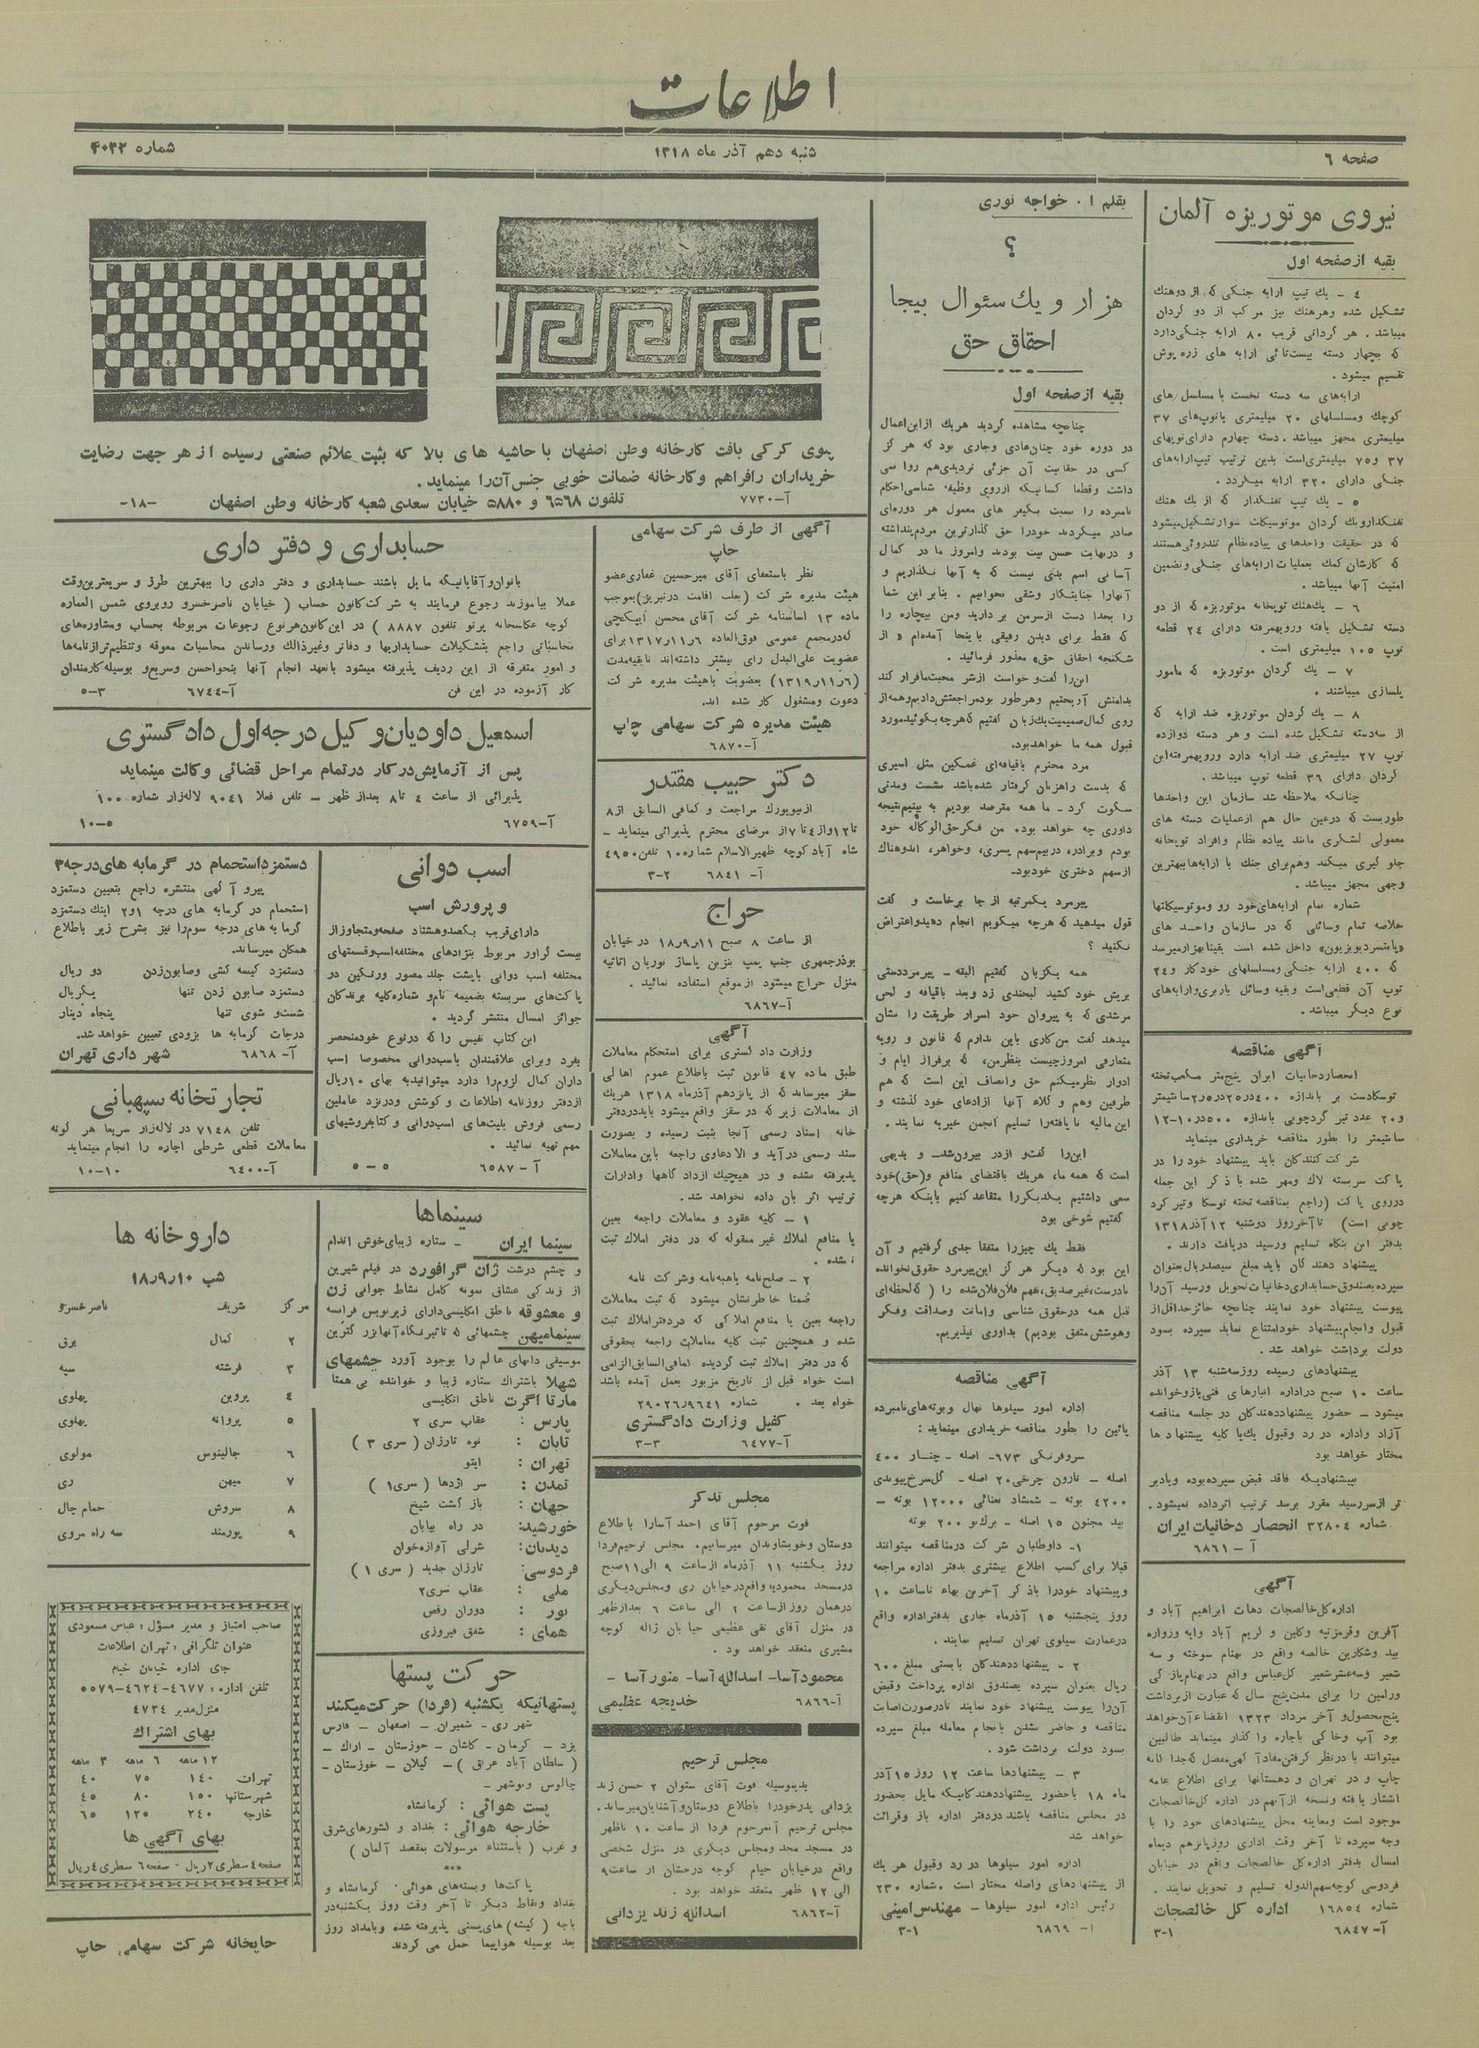 اطلاعات
صفحه ٦
شنبه دهم آذر ماه ١٣١٨
شماره ۴۰۳۲
نیروی موتوریزه آلمان
بقیه از صفحه اول
٤ - یك تیپ ارابه جنگی که از دو هنك
تشکیل شده و هر هنك نیز مرکب از دو گردان
میباشد . هر گردانی قریب ۸۰ ارابه جنگی دارد
که بچهار دسته بیست تائی ارابه های زره پوش
تقسیم میشود .
ارابه‌های سه دسته نخست با مسلسل های
کوچك ومسلسلهای ۲۰ میلیمتری یا توپ‌های ۳۷
میلیمتری مجهز میباشد . دسته چهارم دارای توپهای
۳۷ و ۷۵ میلیمتری است بدین ترتیب تیپ ارابه‌های
جنگی دارای ۳۲۰ ارابه میگردد .
٥ - یك تیپ تفنگدار که از یك هنك
تفنگدار و یك گردان موتوسیکلت سوار تشکیل میشود
که در حقیقت واحدهای پیاده نظام تندروئی هستند
که کارشان کمك بعملیات ارابه‌های جنگی و تضمین
امنیت آنها میباشد .
٦ - یك هنك توپخانه موتوریزه که از دو
دسته تشکیل یافته و رویهمرفته دارای ۲٤ قطعه
توپ ۱۰۵ میلیمتری است .
۷ - یك گردان موتوریزه که مامور
پلسازی میباشند .
۸ - یك گردان موتوریزه ضد ارابه که
از سه دسته تشکیل شده است و هر دسته دوازده
توپ ۳۷ میلیمتری ضد ارابه دارد و رویهمرفته این
گردان دارای ۳٦ قطعه توپ میباشد .
چنانکه ملاحظه شد سازمان این واحدها
طوریست که درعین حال هم از عملیات دسته های
معمولی لشگری مانند پیاده نظام و افراد توپخانه
جلو گیری میکند وهم برای جنك با ارابه‌ها ببهترین
وجهی مجهز میباشد .
شماره تمام ارابه‌های خود رو و موتوسیکلتها
خلاصه تمام وسائلی که در سازمان واحد های
«پانتسردیویزیون» داخل شده است یقینا بهزار میرسد
که ٤۰۰ ارابه جنگی و مسلسلهای خودکار و ۲٤
توپ آن قطعی است و بقیه وسائل باربری و ارابه‌های
نوع دیگر میباشد .
آگهی مناقصه
انحصار دخانیات ایران پنج متر مکعب تخته
شرکت کنندگان باید پیشنهاد خود را در
پاکت سربسته لاك ومهر شده با ذکر این جمله
در روی پاکت (راجع بمناقصه تخته توسکا و تیر گرد
چوبی است) تا آخر روز دوشنبه ۱۲ آذر ۱۳۱۸
بدفتر این بنگاه تسلیم و رسید دریافت دارند .
پیشنهاد دهند گان باید مبلغ سیصد ریال بعنوان
سپرده بصندوق حسابداری دخانیات تحویل و رسید آن را
پیوست پیشنهاد خود نمایند چنانچه حائز حداقل از
قبول و انجام پیشنهاد خود امتناع نماید سپرده بسود
دولت برداشت خواهد شد .
پیشنهادهای رسیده روز سه شنبه ۱۳ آذر
ساعت ۱۰ صبح در اداره انبارهای فنی باز و خوانده
میشود - حضور پیشنهاد دهندگان در جلسه مناقصه
آزاد و اداره در رد و قبول یك یا کلیه پیشنهاد ها
مختار خواهد بود
بپیشنهادیکه فاقد قبض سپرده بوده و یا دیر
تر از سررسید مقرر برسد ترتیب اثر داده نمیشود .
شماره ۳۲۸۰٤ انحصار دخانیات ایران
آ - ٦٨٦١
آگهی
اداره کل خالصجات دهات ابراهیم آباد و
ورامین را برای مدت پنج سال که عبارت از برداشت
میتوانند با در نظر گرفتن مفاد آگهی مفصل که جدا گانه
چاپ و در تهران و دهستانها برای اطلاع عامه
انتشار یافته و نسخه از آنهم در اداره کل خالصجات
موجود است و معاینه محل پیشنهادهای خود را با
وجه سپرده تا آخر وقت اداری روز پانزدهم دیماه
امسال بدفتر اداره کل خالصجات واقع در خیابان
فردوسی کوچه سهم الدوله تسلیم و تحویل نمایند .
شماره ١٦٨٥٤ اداره کل خالصجات
آ- ٦٨٤٧ ۳-۱
بقلم ا . خواجه نوری
؟
هزار و یك سئوال بیجا
احقاق حق
بقیه از صفحه اول
چنانچه مشاهده گردید هر یك از این اعمال
در دوره خود چنان عادی و جاری بود که هر گز
کسی در حقانیت آن جزئی تردیدی هم روا نمی
داشت و قطعا کسانیکه از روی وظیفه شناسی احکام
نامبرده را نسبت بکیفر های معمول هر دوره‌ای
صادر میکردند خود را حق گذارترین مردم پنداشته
و در نهایت حسن نیت بودند و امروز ما در کمال
آسانی اسم بدی نیست که به آنها نگذاریم و
آنها را جنایتکار و شقی نخوانیم . بنابر این شما
را بخدا دست از سر من بر دارید ومن بیچاره را
که فقط برای دیدن رفیقی باینجا آمده‌ام « از
شکنجه احقاق حق » معذور فرمائید .
این را گفت و خواست از شر محبت ما فرار کند
بدامنش آویختیم و هر طور بود مراجعتش دادیم و همه از
روی کمال صمیمیت یك زبان گفتیم که هر چه بگوئید مورد
قبول همه ما خواهد بود .
مرد محترم با قیافه‌ای غمگین مثل اسیری
که بدست راهزنان گرفتار شده باشد نشست و مدتی
سکوت کرد - ما همه مترصد بودیم به بینیم نتیجه
داوری چه خواهد بود . من فکر حق الوکاله خود
بودم و برادر ، در بیم سهم پسری ، و خواهر ، اندوهناك
از سهم دختری خود بود .
پیرمرد یکمرتبه از جا برخاست و گفت
قول میدهید که هر چه میگویم انجام دهید و اعتراض
نکنید ؟
همه یکزبان گفتیم البته - پیرمرد دستی
بریش خود کشید لبخندی زد و بعد با قیافه و لحن
مرشدی که به پیروان خود اسرار طریقت را نشان
میدهد گفت من کاری باین ندارم که قانون و رویه
متعارفی امروز چیست بنظر من ، که بر فراز ایام و
ادوار نظر میکنم حق و انصاف این است که هم
طرفین وهم وکلاء آنها از ادعای خود گذشته و
این مالیه نایافته را تسلیم انجمن خیریه نمایند .
این را گفت و از در بیرون شد- و بدیهی
است که همه ما ، هر یك باقتضای منافع و (حق) خود
سعی داشتیم یکدیگر را متقاعد کنیم باینکه هر چه
گفتیم شوخی بود
فقط یك چیز را متفقا جدی گرفتیم و آن
این بود که دیگر هر گز این پیرمرد حقوق نخوانده
نادرست ، غیر صدیق ، نفهم فلان فلان شده را ( که لحظه‌ای
قبل همه در حقوق شناسی و امانت و صداقت و فکر
و هوشش متفق بودیم ) بداوری نپذیریم .
آگهی مناقصه
اداره امور سیلوها نهال و بوته های نامبرده
پائین را بطور مناقصه خریداری مینماید :
سرو فرنگی ٦٧٣ اصله - چنار ٤۰۰
اصله - نارون چرخی ۲۰ اصله - گل سرخ پیوندی
٤۲۰۰ بوته - شمشاد نعنائی ۱۲۰۰۰ بوته -
بید مجنون ۱۵ اصله - برك نو ۲۰۰ بوته
۱- داوطلبان شرکت در مناقصه میتوانند
قبلا برای کسب اطلاع بیشتری بدفتر اداره مراجعه
و پیشنهاد خود را با ذکر آخرین بهاء تا ساعت ۱۰
روز پنجشنبه ۱۵ آذر ماه جاری بدفتر اداره واقع
در عمارت سیلوی تهران تسلیم نمایند .
۲ - پیشنهاد دهندگان بایستی مبلغ ٦۰۰
ریال بعنوان سپرده بصندوق اداره پرداخت و قبض
آن را پیوست پیشنهاد خود نمایند تا در صورت اصابت
مناقصه و حاضر نشدن بانجام معامله مبلغ سپرده
بسود دولت برداشت شود .
۳ - پیشنهادها ساعت ۱۲ روز ۱۵ آذر
ماه ۱۸ با حضور پیشنهاد دهندگانیکه مایل بحضور
در مجلس مناقصه باشند در دفتر اداره باز و قرائت
خواهد شد
اداره امور سیلوها در رد و قبول هر یك
از پیشنهادهای واصله مختار است . شماره ۲۳۰
رئیس اداره امور سیلوها - مهندس امینی
آ- ٦٨٦٩ ۳-۱
پتوی کرکی بافت کارخانه وطن اصفهان با حاشیه های بالا که بثبت علائم صنعتی رسیده از هر جهت رضایت
خریداران را فراهم و کارخانه ضمانت خوبی جنس آن را مینماید .
آ-۷۷۳۰ تلفون ٦٥٦٨ و ٥٨٨٠ خیابان سعدی شعبه کارخانه وطن اصفهان -۱۸-
آگهی از طرف شرکت سهامی
چاپ
نظر باستعفای آقای میرحسین غفاری عضو
هیئت مدیره شرکت (بعلت اقامت در تبریز) بموجب
ماده ۱۳ اساسنامه شرکت آقای محسن ایپکچی
که در مجمع عمومی فوق العاده ٦ر۱۱ر۱۳۱۷ برای
عضویت علی البدل رای بیشتر داشته‌اند تا بقیه مدت
(٦ر۱۱ر۱۳۱۹) بعضویت با هیئت مدیره شرکت
دعوت و مشغول کار شده اند .
هیئت مدیره شرکت سهامی چاپ
آ-٦٨٧٠
دکتر حبیب مقتدر
از نیویورك مراجعت و کمافی السابق از ۸
تا ۱۲ و از ٤ تا ۷ از مرضای محترم پذیرائی مینماید -
شاه آباد کوچه ظهیرالاسلام شماره ۱۰ تلفن ٤٩٥٠
آ- ٦٨٤١ ۳-۲
حراج
از ساعت ۸ صبح ۱۱ر۹ر۱۸ در خیابان
بوذرجمهری جنب پمپ بنزین پاساژ نوریان اثاثیه
منزل حراج میشود از موقع استفاده نمائید .
آ-٦٨٦٧
آگهی
وزارت داد گستری برای استحکام معاملات
طبق ماده ٤۷ قانون ثبت باطلاع عموم اهالی
سقز میرساند که از پانزدهم آذر ماه ۱۳۱۸ هر یك
از معاملات زیر که در سقز واقع میشود باید در دفتر
خانه اسناد رسمی آنجا بثبت رسیده و بصورت
سند رسمی در آید و الا دعاوی راجعه باین معاملات
پذیرفته نشده و در هیچیك از داد گاهها و ادارات
ترتیب اثر بآن داده نخواهد شد .
۱ - کلیه عقود و معاملات راجعه بعین
یا منافع املاك غیر منقوله که در دفتر املاك ثبت
نشده .
۲ - صلح نامه یا هبه نامه و شرکت نامه
ضمنا خاطر نشان میشود که ثبت معاملات
راجعه بعین یا منافع املاکی که در دفتر املاك ثبت
شده و همچنین ثبت کلیه معاملات راجعه بحقوقی
که در دفتر املاك ثبت گردیده کمافی السابق الزامی
است خواه قبل از تاریخ مزبور بعمل آمده باشد
خواه بعد . شماره ٢٩٠٢٦/٩٦٤١
کفیل وزارت دادگستری
آ-٦٤٧٧ ۳-۳
مجلس تذکر
فوت مرحوم آقای احمد آسا را باطلاع
دوستان و خویشاوندان میرسانیم . مجلس ترحیم فردا
روز یکشنبه ۱۱ آذر ماه از ساعت ۹ الی ۱۱ صبح
در مسجد محمودیه واقع در خیابان ری و مجلس دیگری
در همان روز از ساعت ۲ الی ساعت ٦ بعد از ظهر
در منزل آقای تقی عظیمی خیابان ژاله کوچه
مشیری منعقد خواهد بود .
محمود آسا - اسدالله آسا - منور آسا -
آ-٦٨٦٦ خدیجه عظیمی
مجلس ترحیم
بدینوسیله فوت آقای ستوان ۲ حسن زند
یزدانی پدر خود را باطلاع دوستان و آشنایان میرساند .
مجلس ترحیم آنمرحوم فردا از ساعت ۱۰ تا ظهر
در مسجد مجد و مجلس دیگری در منزل شخصی
واقع در خیابان خیام کوچه درخشان از ساعت ۹
الی ۱۲ ظهر منعقد خواهد بود .
آ-٦٨٦٢ اسدالله زند یزدانی
حسابداری و دفتر داری
بانوان و آقایانیکه مایل باشند حسابداری و دفتر داری را ببهترین طرز و سریعترین وقت
عملا بیاموزند رجوع فرمایند به شرکت کانون حساب ( خیابان ناصر خسرو روبروی شمس العماره
کوچه عکاسخانه پرتو تلفون ۸۸۸۷ ) در این کانون هر نوع رجوعات مربوطه بحساب و مشاوره‌های
محاسباتی راجع بتشکیلات حسابداریها و دفاتر و غیر ذالك و رساندن محاسبات معوقه و تنظیم ترازنامه‌ها
و امور متفرقه از این ردیف پذیرفته میشود با تعهد انجام آنها بنحو احسن و سریع و بوسیله کارمندان
کار آزموده در این فن آ-٦٧٤٤ ۵-۳
اسمعیل داودیان وکیل درجه اول دادگستری
پس از آزمایش در کار در تمام مراحل قضائی وکالت مینماید
پذیرائی از ساعت ٤ تا ۸ بعد از ظهر - تلفن فعلا ٩٠٤١ لاله‌زار شماره ۱۰۰
آ-٦٧٥٩ ۱۰-۵
اسب دوانی
و پرورش اسب
دارای قریب یکصد و هشتاد صفحه و متجاوز از
بیست گراور مربوط بنژادهای مختلفه اسب و قسمتهای
مختلفه اسب دوانی با پشت جلد مصور و رنگین در
پاکت‌های سربسته بضمیمه نام و شماره کلیه برندگان
جوائز امسال منتشر گردید .
این کتاب نفیس را که در نوع خود منحصر
بفرد و برای علاقمندان باسب دوانی مخصوصا اسب
داران کمال لزوم را دارد میتوانید به بهای ۱۰ ریال
از دفتر روزنامه اطلاعات و کوشش و در نزد عاملین
رسمی فروش بلیت‌های اسب دوانی و کتابفروشیهای
مهم تهیه نمائید .
آ - ٦٥٨٧ ۵-۵
دستمزد استحمام در گرمابه های درجه ۳
پیرو آگهی منتشره راجع بتعیین دستمزد
استحمام در گرمابه های درجه ۱ و ۲ اینك دستمزد
گرمابه‌های درجه سوم را نیز بشرح زیر باطلاع
همگان میرساند .
دستمزد کیسه کشی و صابون زدن دو ریال
دستمزد صابون زدن تنها یکریال
شست و شوی تنها پنجاه دینار
درجات گرمابه ها بزودی تعیین خواهد شد .
آ- ٦٨٦٨ شهر داری تهران
تجارتخانه سپهبانی
تلفن ۷۱٤۸ در لاله‌زار سریعا هر گونه
معاملات قطعی شرطی اجاره را انجام مینماید
آ-٦٤٠٠ ۱۰-۱۰
سینماها
سینما ایران - ستاره زیبای خوش اندام
و چشم درشت ژان گرافورد در فیلم شیرین
از زندگی عشاق نمونه کامل نشاط جوانی زن
و معشوقه ناطق انگلیسی دارای زیر نویس فرانسه
سینما میهن چشمهائی که تاثیر نگاه آنها بزرگترین
موسیقی دانهای عالم را بوجود آورد چشمهای
شهلا باشتراك ستاره زیبا و خواننده بی همتا
مارتا اگرت ناطق انگلیسی
پارس : عقاب سری ۲
تابان : نوه تارزان ( سری ۳ )
تهران : ایتو
تمدن : سر اژدها ( سری ۱ )
جهان : باز گشت شیخ
خورشید : در راه بیابان
دیدبان : شرلی آوازه‌خوان
فردوسی : تارزان جدید ( سری ۱ )
ملی : عقاب سری ۲
نور : دوران رقص
همای : شفق فیروزی
حرکت پستها
پستهائیکه یکشنبه (فردا) حرکت میکنند
شهر ری - شمیران - اصفهان - فارس
یزد - کرمان - کاشان - خوزستان - اراك -
( سلطان آباد عراق ) - گیلان - خوزستان -
چالوس و نوشهر -
پست هوائی : کرمانشاه
خارجه هوائی : بغداد و کشورهای شرق
و غرب ( باستثناء مرسولات بمقصد آلمان )
***
پاکت‌ها و بسته‌های هوائی کرمانشاه و
بغداد و نقاط دیگر تا آخر وقت روز یکشنبه در
باجه ( گیشه ) های پستی پذیرفته شده و بامداد روز
بعد بوسیله هواپیما حمل می گردند
داروخانه ها
شب ۱۰ر۹ر۱۸
مرکز شریف ناصرخسرو
۲ کمال برق
۳ فرشته سپه
٤ پروین پهلوی
۵ پروانه پهلوی
٦ جالینوس مولوی
۷ میهن ری
۸ سروش حمام چال
۹ پورمند سه راه مروی
صاحب امتیاز و مدیر مسؤل : عباس مسعودی
عنوان تلگرافی : تهران اطلاعات
جای اداره خیابان خیام
تلفن اداره : ٤٦٧٧-٤٦٢٤-٥٥٧٩
منزل مدیر ٤٧٣٤
بهای اشتراك
۱۲ ماهه ٦ ماهه ۳ ماهه
تهران ۱٤۰ ۷۵ ٤۰
شهرستانها ۱۵۰ ۸۰ ٤۵
خارجه ۲٤۰ ۱۲۵ ٦۵
بهای آگهی ها
صفحه ٤ سطری ۲ ریال - صفحه ٦ سطری ٤ ریال
چاپخانه شرکت سهامی چاپ